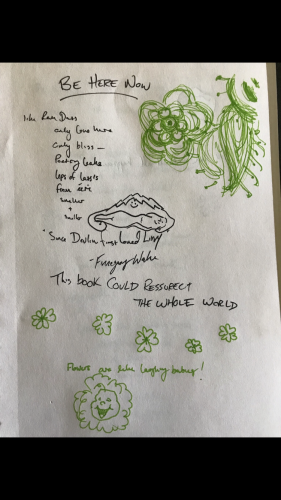 BE HERE NOW
like Ram Dass
only love here
only bliss —
Poetry leaks
lips of
from
smaller
+
smaller
"Since Devlin first loved Livvy"
- Finnegans Wake
This book COULD RESSURECT
THE WHOLE WORLD
Flowers are like laughing babies!